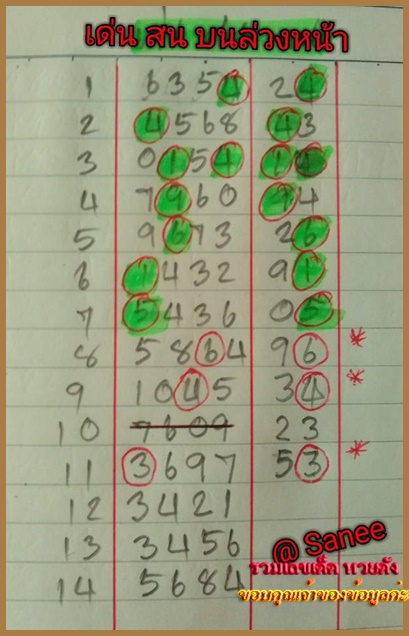 เด่น สน บนล่วงหน้า
1 6354 24
2 4568 43
3 0154 1
4 7960 94
5 9673 26
6 1432 91
7 5436 05
8 5864 96 *
9 1045 34 *
10 7609 23
11 3697 53 *
12 3421
13 3456
14 5684
@ Sanee
รวมเลขเด็ด หวยดัง
ขอบคุณเจ้าของข้อมูลค่ะ